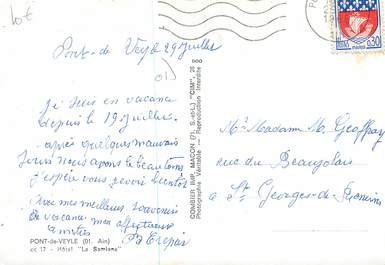 10€
Pont-de Veyle 29 juillet
01)
Je suis en vacance
depuis le 19 juillet.
après quelques mauvais
Jours nous avons le beau temps
J'espère vous revoir bientôt
Avec mes meilleurs souvenirs
de vacances mes affectueuses
amitiés
PONT-de-VEYLE (01. Ain)
et 17 - Hôtel "La Samiane"
COMBIER IMP. MACON (71. S.-et-L.) "CIM"
Photographie Véritable — Reproduction Interdite
0,30
Mr Madame M. Geoffray
rue du Beaujolais
a St Georges-de-Reneins